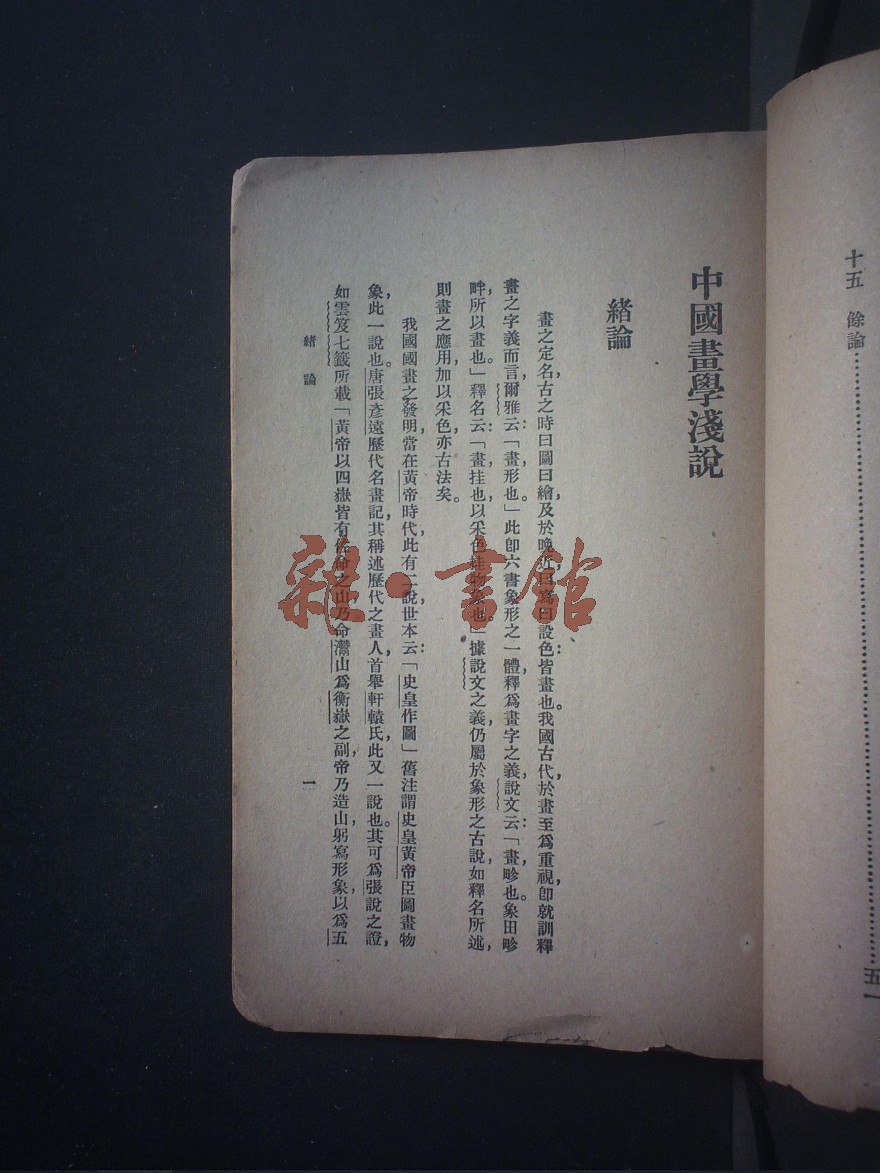 十五　餘論……五一
中國畫學淺說
緒論
畫之定名古之時曰圖曰繪，及於晚近曰寫曰設色皆畫也。我國古代於畫至爲重視，卽就訓釋
畫之字義而言，爾雅云：「畫，形也」此卽六書象形之一體，釋爲畫字之義，說文云：「畫，畍也。象田畍
畔，所以畫也」釋名云：「畫，挂也，以采色挂物象也」據說文之義，仍屬於象形之古說，如釋名所述，
則畫之應用，加以采色，亦古法矣。
我國國畫之發明，當在黃帝時代，此有二說，世本云：「史皇作圖」舊注謂史皇黃帝臣圖畫物
象，此一說也。唐張彥遠歷代名畫記，其稱述歷代之畫人，首舉軒轅氏，此又一說也。其可爲張說之證，
如雲笈七籤所載「黃帝以四嶽皆有佐命之山，乃命灊山爲衡嶽之副，帝乃造山，躬寫形象，以爲五
緒論
一
雜·書館